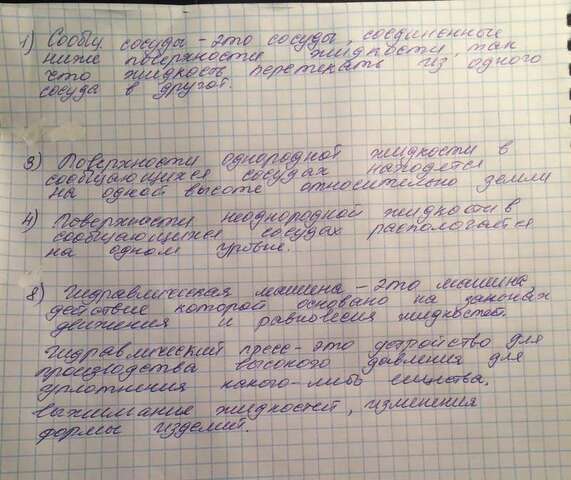 1) Сообщ. сосуды - это сосуды, соединенные
ниже поверхности жидкости, так
что жидкость перетекать из одного
сосуда в другой.
3) Поверхности однородной жидкости в
сообщающихся сосудах находятся
на одной высоте относительно земли
4) Поверхности неоднородной жидкости в
сообщающихся сосудах распологается
на одном уровне.
8) Гидравлическая машина - это машина,
действие которой основано на законах
движения и равновесия жидкостей.
Гидравлический пресс - это устройство для
производства высокого давления для
уплотнения какого-либо вещества,
выжимание жидкостей, изменения
формы изделий.